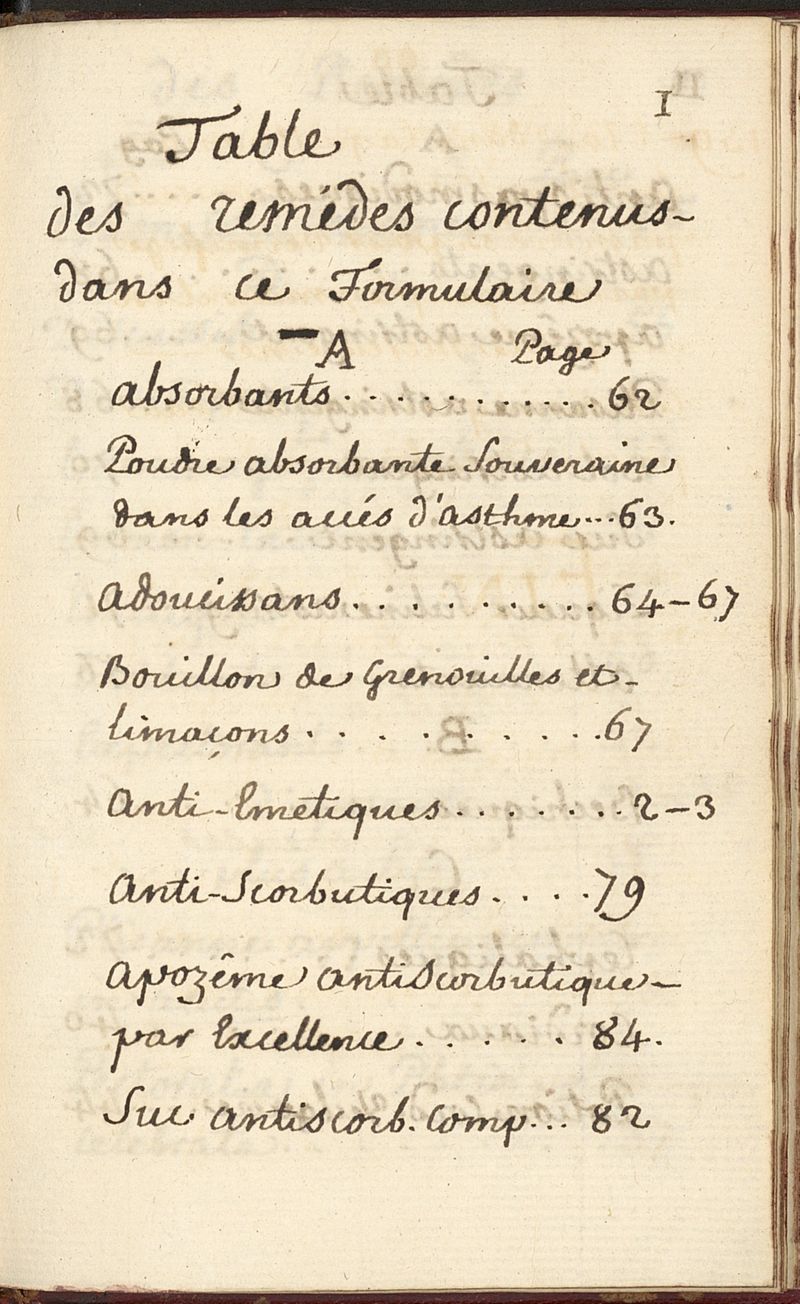 I
Table
des remédes contenus-
dans ce Formulaire
A Page
absorbants............62
Poudre absorbante Souveraine
dans les accés d'asthme...63.
adoucissans..........64-67
Bouillon de Grenouilles et-
limaçons.........67
Anti-Emetiques.......2-3
Anti-Scorbutiques....79
apozême antiscorbutique-
par Excellence......84.
Suc antiscorb. Comp...82